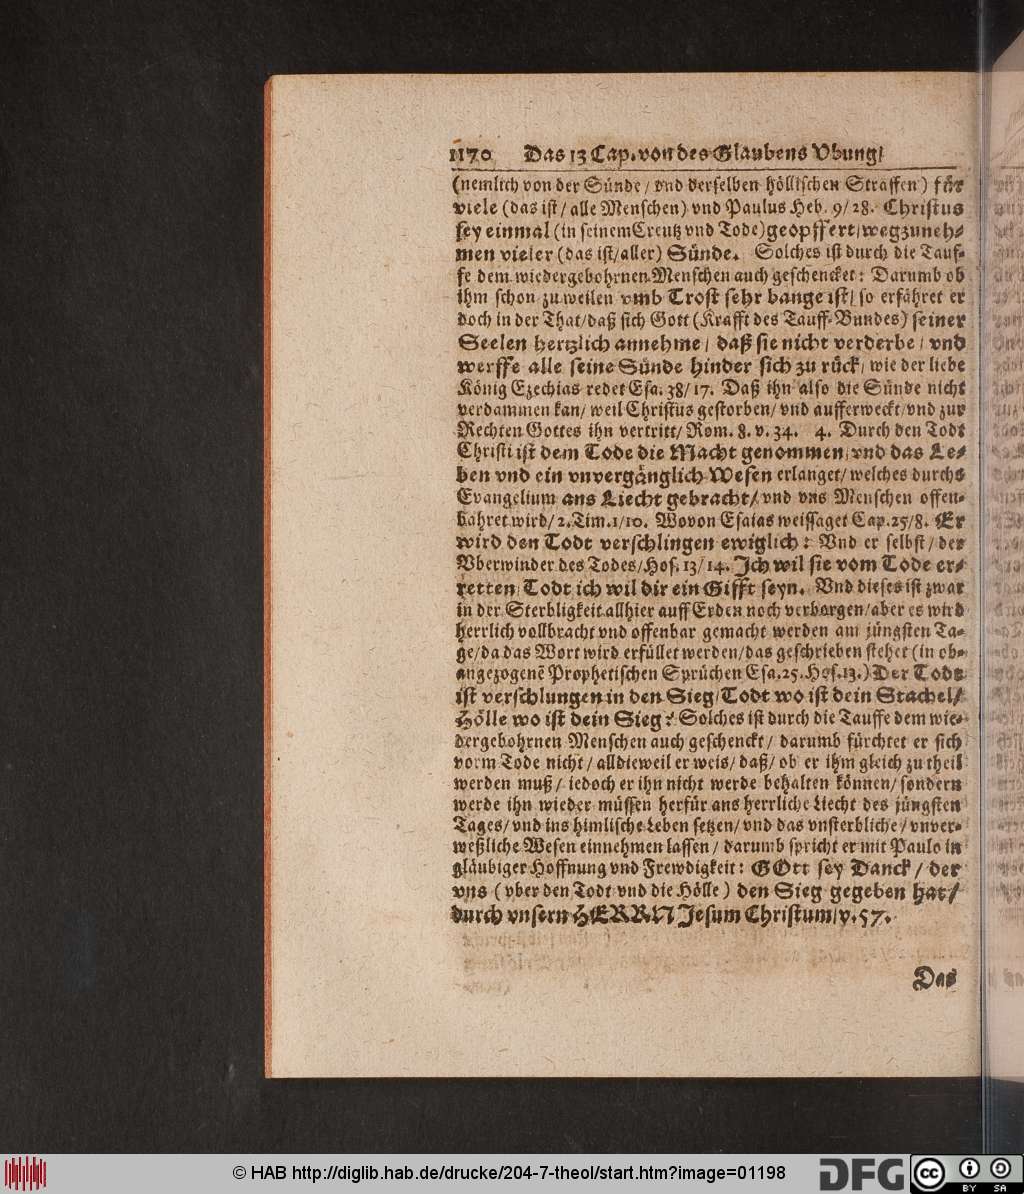 1170 Das 13 Cap. von des Glaubens Vbung/
(nemlich von der Sünde / vnd derselben höllischen Straffen) für
viele (das ist / alle Menschen) vnd Paulus Heb. 9/28. Christus
sey einmal (in seinem Creutz vnd Tode) geopffert / wegzuneh-
men vieler (das ist / aller) Sünde. Solches ist durch die Tauf-
fe dem wiedergebohrnen Menschen auch geschencket: Darumb ob
ihm schon zu weilen vmb Trost sehr bange ist / so erfähret er
doch in der That / daß sich Gott (Krafft des Tauff-Bundes) seiner
Seelen hertzlich annehme / daß sie nicht verderbe / vnd
werffe alle seine Sünde hinder sich zu rück / wie der liebe
König Ezechias redet Esa. 38/17. Daß ihn also die Sünde nicht
verdammen kan / weil Christus gestorben / vnd aufferweckt / vnd zur
Rechten Gottes ihn vertritt / Rom. 8. v. 34. 4. Durch den Todt
Christi ist dem Tode die Macht genommen / vnd das Le-
ben vnd ein vnvergänglich Wesen erlanget / welches durchs
Evangelium ans Liecht gebracht / vnd vns Menschen offen-
bahret wird / 2. Tim. 1/10. Wovon Esaias weissaget Cap. 25/8. Er
wird den Todt verschlingen ewiglich: Vnd er selbst / der
Vberwinder des Todes / Hos. 13/14. Ich wil sie vom Tode er-
retten / Todt ich wil dir ein Gifft seyn. Vnd dieses ist zwar
in der Sterbligkeit allhier auff Erden noch verborgen / aber es wird
herrlich vollbracht vnd offenbar gemacht werden am jüngsten Ta-
ge / da das Wort wird erfüllet werden / das geschrieben stehet (in ob-
angezogenē Prophetischen Sprüchen Esa. 25. Hos. 13.) Der Todt
ist verschlungen in den Sieg / Todt wo ist dein Stachel /
Hölle wo ist dein Sieg? Solches ist durch die Tauffe dem wie-
dergebohrnen Menschen auch geschenckt / darumb fürchtet er sich
vorm Tode nicht / alldieweil er weis / daß / ob er ihm gleich zu theil
werden muß / iedoch er ihn nicht werde behalten können / sondern
werde ihn wieder müssen herfür ans herrliche Liecht des jüngsten
Tages / vnd ins himlische Leben setzen / vnd das vnsterbliche / vnver-
weßliche Wesen einnehmen lassen / darumb spricht er mit Paulo in
gläubiger Hoffnung vnd Frewdigkeit: GOtt sey Danck / der
vns (vber den Todt vnd die Hölle) den Sieg gegeben hat /
durch vnsern HERRN Jesum Christum / v. 57.
Das
© HAB http://diglib.hab.de/drucke/204-7-theol/start.htm?image=01198
DFG
cc
BY SA